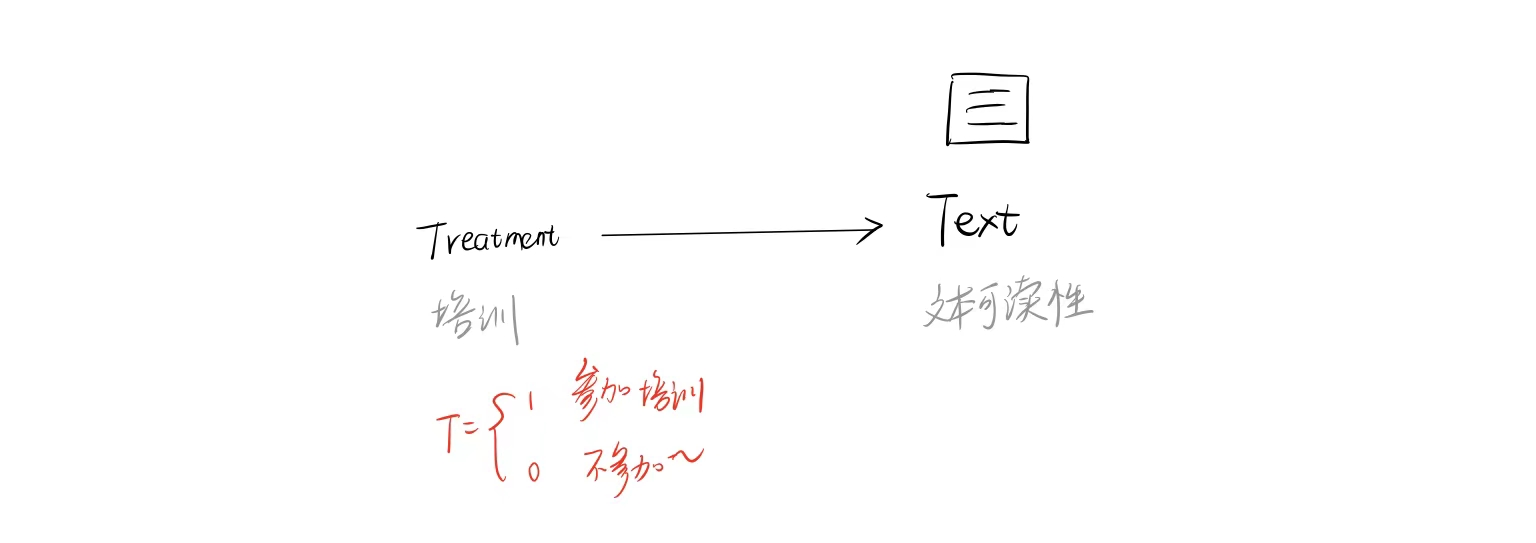 Treatment
Text
培训
文本可读性
T= { 1 参加培训
0 不参加~